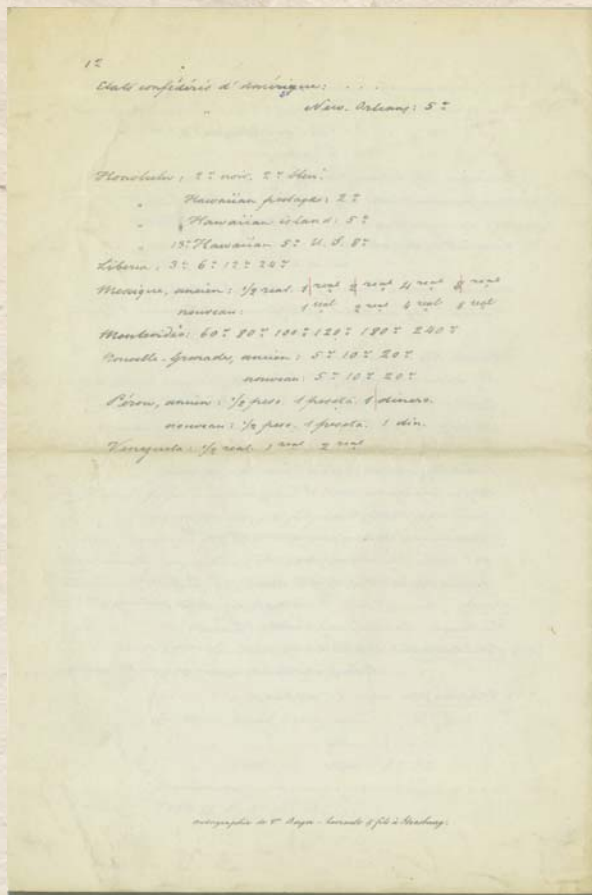 12
Etats confédérés d'Amérique: . . .
" New-Orleans: 5 c
Honolulu, 2 c noir. 2 c bleu.
" Hawaiian postage: 2 c
" Hawaiian island: 5 c
" 13 c Hawaiian 5 c U. S. 8 c
Liberia, 3 c 6 c 12 c 24 c
Mexique, ancien: 1/2 real. 1 real 2 real 4 real 8 real
nouveau: 1 real 2 real 4 real 8 real
Montevideo: 60 c 80 c 100 c 120 c 180 c 240 c
Nouvelle-Grenade, ancien: 5 c 10 c 20 c
nouveau: 5 c 10 c 20 c
Pérou, ancien: 1/2 peso. 1 peseta. 1 dinero.
nouveau: 1/2 peso. 1 peseta. 1 din.
Venezuela: 1/2 real 1 real 2 real
Autographie de Berger-Levrault & fils à Strasbourg.